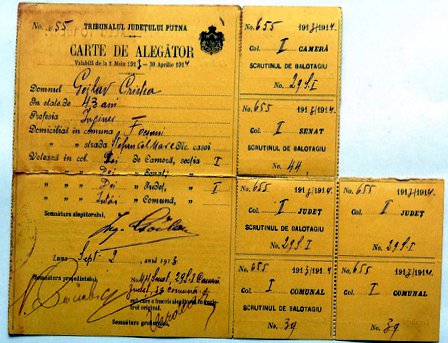 No. 655 TRIBUNALUL JUDEȚULUI PUTNA
CARTE DE ALEGĂTOR
Valabilă de la 1 Main 1913 — 30 Aprilie 1914
Domnul Goșlav Cristea
In etate de 43 ani
Profesia Inginer
Domiciliat in comuna Focșani
" " strada Ștefan Cel Mare No. casei
Votează in col. I de Cameră, secția I
" " " Senat, "
" " " Județ, " I
" " " Comună, "
Semnătura alegătorului,
Luna Sept 2 anul 1913
Semnătura președintelui
No. 44 Senat, 29 S. I Cameră
Județ, 39 comună
sub care e înscris alegătorul in
original.
Semnătura grefierului
No. 655 1913/1914
Col. I CAMERĂ
SCRUTINUL DE BALOTAGIU
No. 29 S. I
No. 655 1913/1914
Col. I SENAT
SCRUTINUL DE BALOTAGIU
No. 44
No. 655 1913/1914.
Col. I JUDEȚ
SCRUTINUL DE BALOTAGIU
No. 29 S. I
No. 655 1913/1914.
Col. I JUDEȚ
No. 29 S. I
No. 655 1913/1914
Col. I COMUNAL
SCRUTINUL DE BALOTAGIU
No. 39
No. 655 1913/1914.
Col. I COMUNAL
No. 39